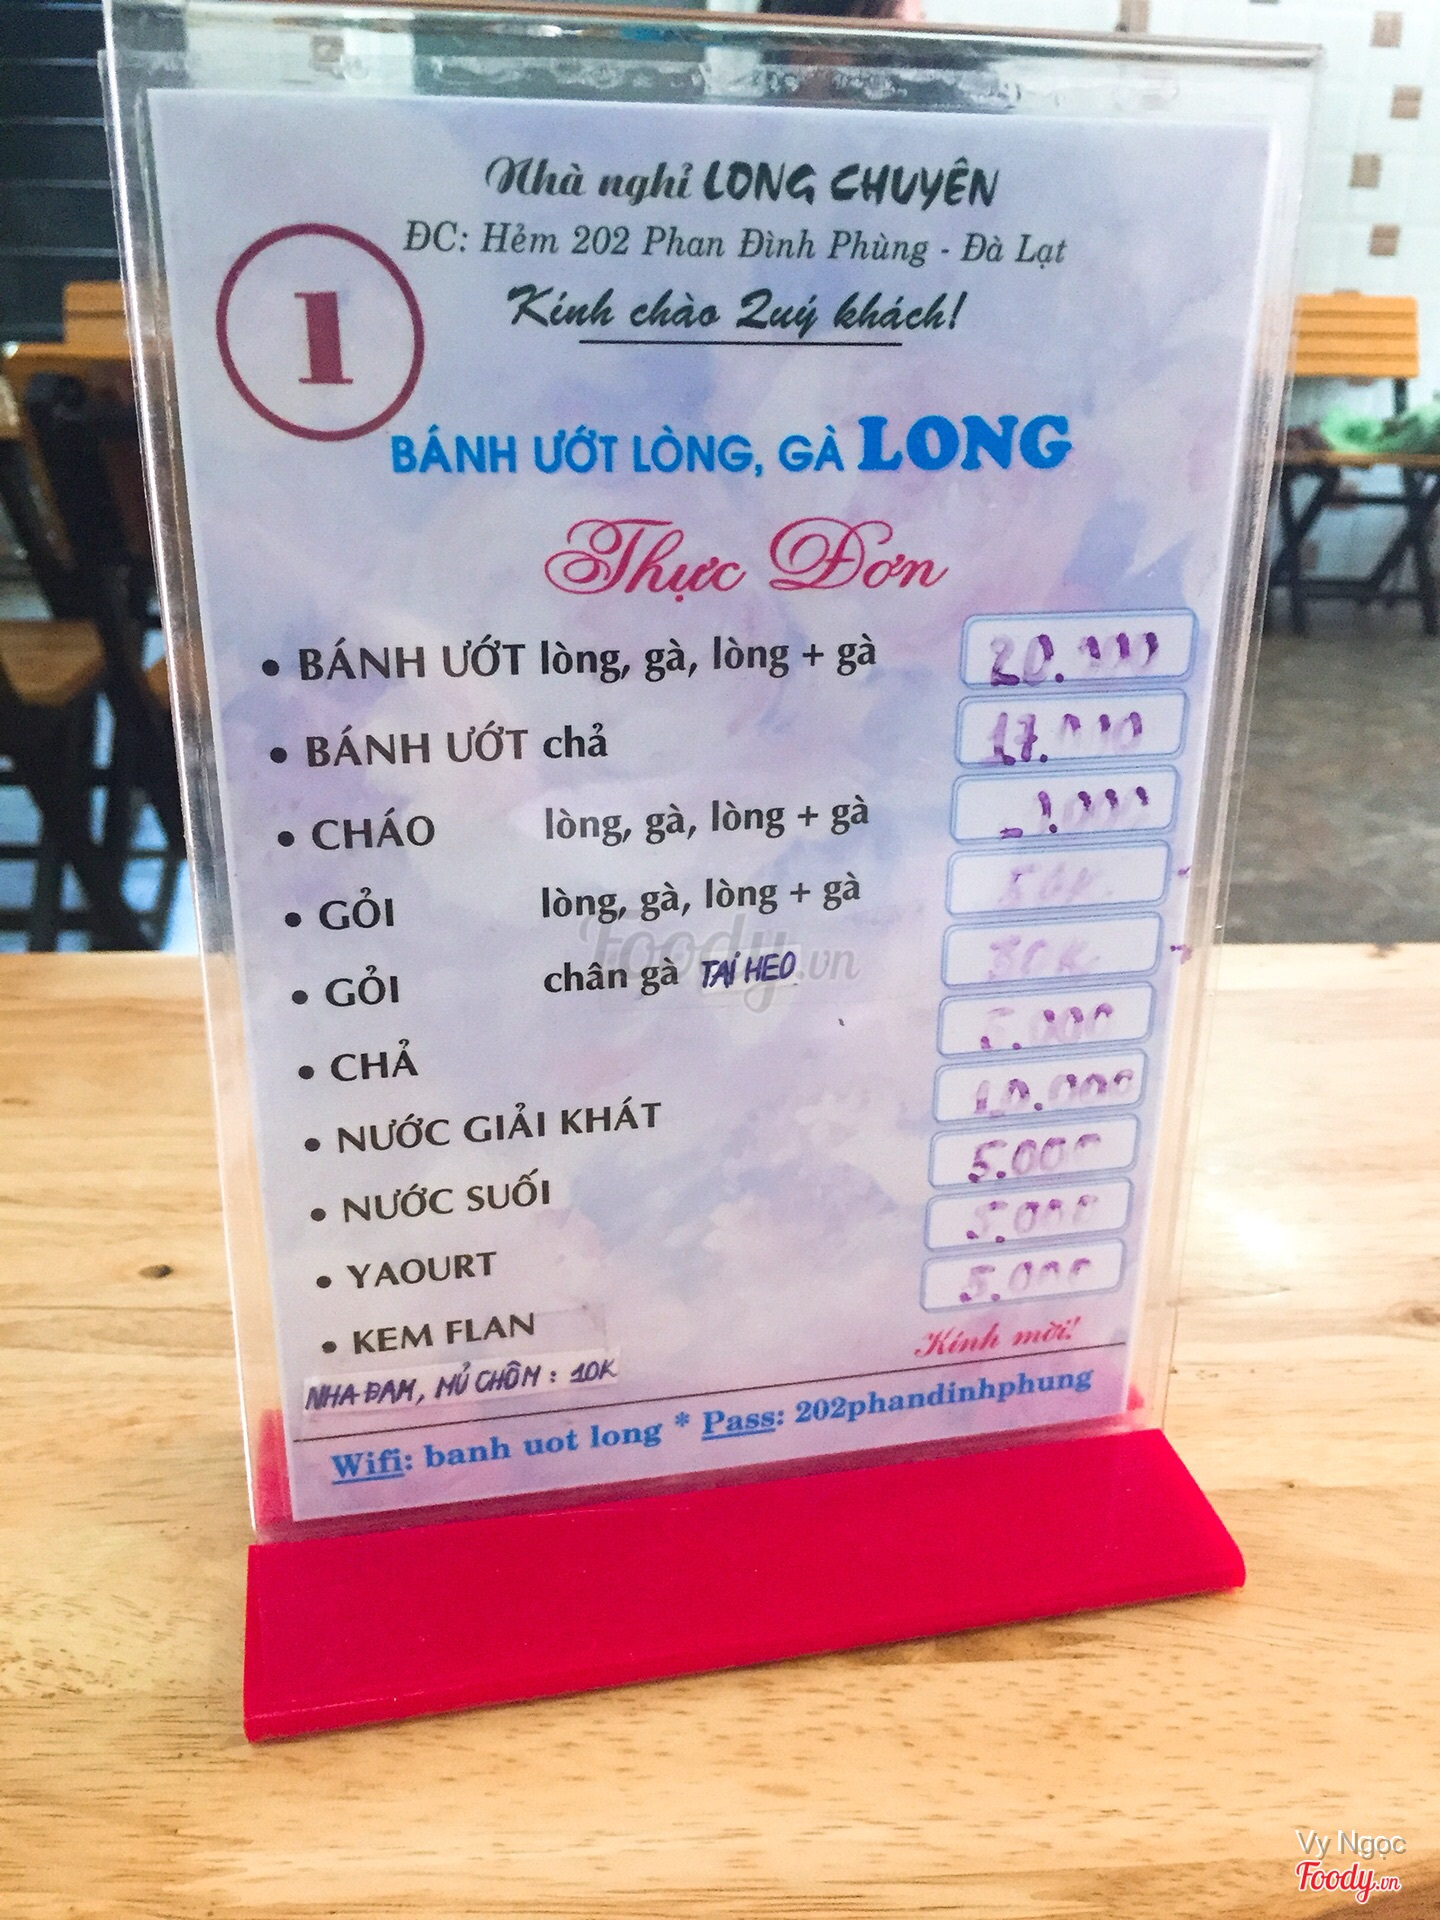 Nhà nghỉ LONG CHUYÊN
ĐC: Hẻm 202 Phan Đình Phùng - Đà Lạt
Kính chào Quý khách!
1
BÁNH ƯỚT LÒNG, GÀ LONG
Thực Đơn
• BÁNH ƯỚT lòng, gà, lòng + gà 20.000
• BÁNH ƯỚT chả 17.000
• CHÁO lòng, gà, lòng + gà
• GỎI lòng, gà, lòng + gà 50K
• GỎI chân gà TAI HEO
• CHẢ 5.000
• NƯỚC GIẢI KHÁT 10.000
• NƯỚC SUỐI 5.000
• YAOURT 5.000
• KEM FLAN 5.000
NHA ĐAM, MỦ CHÔM : 10K
Kính mời!
Wifi: banh uot long * Pass: 202phandinhphung
Foody.vn
Vy Ngọc
Foody.vn